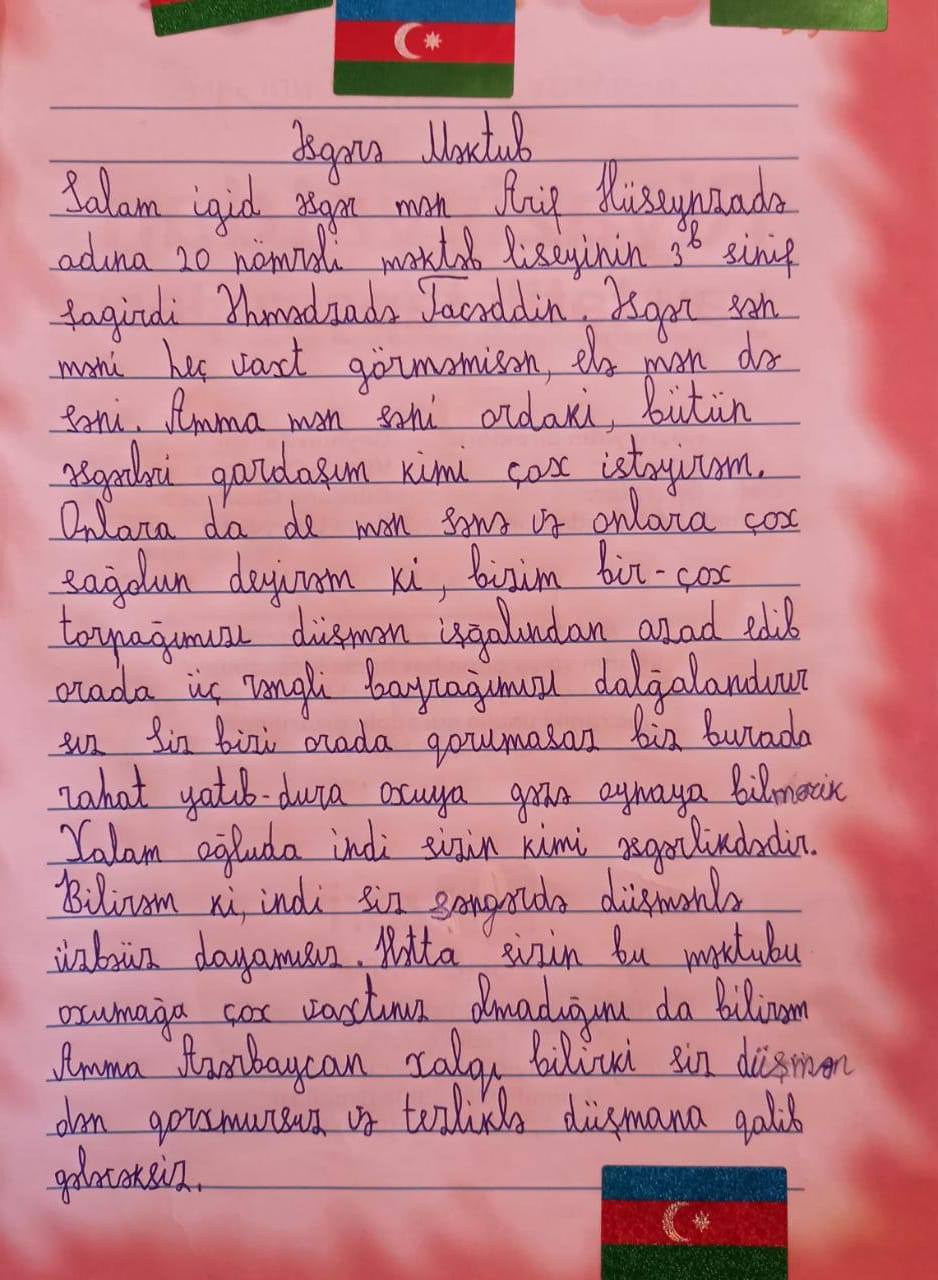 Əsgərə Məktub
Salam igid əsgər mən Arif Hüseynzadə
adına 20 nömrəli məktəb liseyinin 3ᵇ sinif
şagirdi Əhmədzadə Tacəddin. Əsgər sən
məni heç vaxt görməmisən, elə mən də
səni. Amma mən səni ordakı, bütün
əsgərləri qardaşım kimi çox istəyirəm.
Onlara da de mən sənə və onlara çox
sağolun deyirəm ki, bizim bir-çox
torpağımızı düşmən işğalından azad edib
orada üç rəngli bayrağımızı dalğalandırır
sız Siz bizi orada qorumasaz biz burada
rahat yatıb-dura oxuya gəzə oynaya bilmərik
Xalam oğluda indi sizin kimi əsgərlikdədir.
Bilirəm ki, indi siz səngərdə düşmənlə
üzbəüz dayamısız. Hətta sizin bu məktubu
oxumağa çox vaxtınız olmadığını da bilirəm
Amma Azərbaycan xalqı bilirki siz düşmən
dən qorxmursuz və tezliklə düşmana qalib
gələcəksiz.